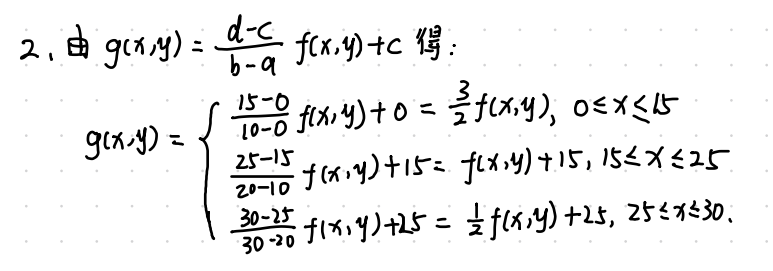 2. 由 g(x,y) = \frac{d-c}{b-a} f(x,y)+c 得:
g(x,y) = { \frac{15-0}{10-0} f(x,y)+0 = \frac{3}{2} f(x,y), 0≤x≤15
\frac{25-15}{20-10} f(x,y)+15 = f(x,y)+15, 15≤x≤25
\frac{30-25}{30-20} f(x,y)+25 = \frac{1}{2} f(x,y)+25, 25≤x≤30.